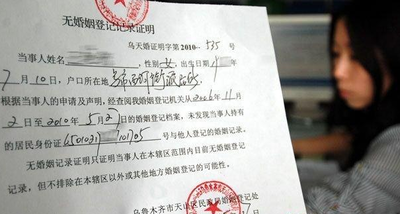 无婚姻登记记录证明
乌天婚证明字第2010-535号
当事人姓名 性别女,出生日期
7月10日,户口所在地
根据当事人的申请及声明,经查阅我婚姻登记机关从2006年11月
2日至2010年5月27日的婚姻登记档案,未发现当事人持有
的居民身份证 号与他人登记的婚姻记录。
无婚姻记录证明只证明当事人在本辖区范围内目前无婚姻登
记记录,但不排除在本辖区以外或其他地方婚姻登记的可能性。
乌鲁木齐市天山区民政局婚姻登记处